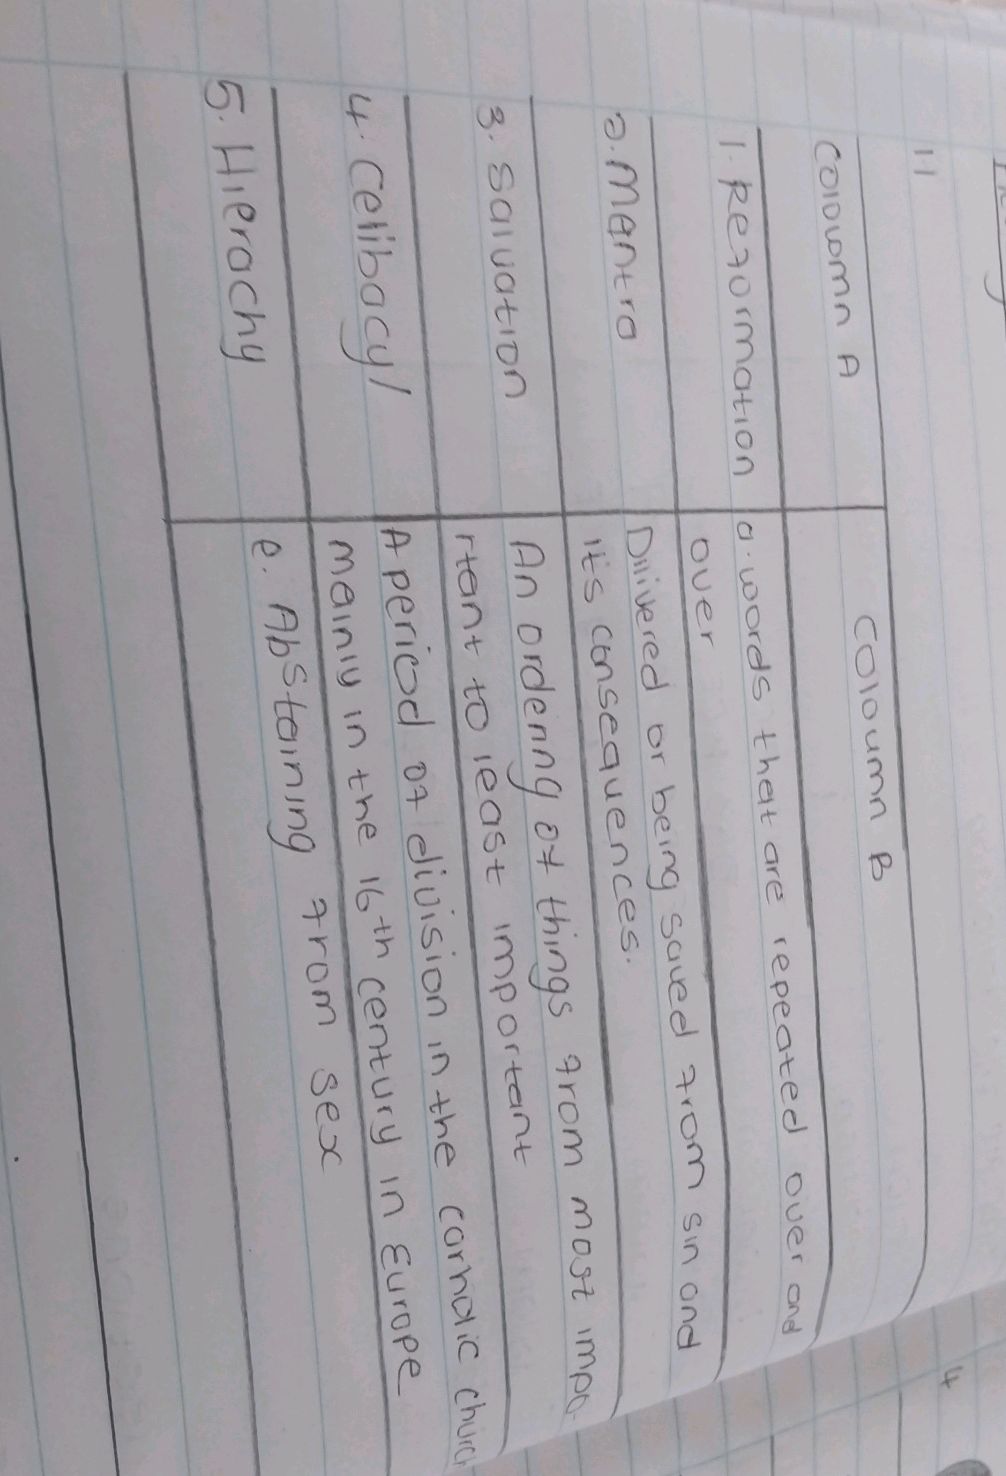 11
4
Colowmn A
Coloumn B
1. Reformation
a. words that are repeated over and
over
2. Mantra
Dilivered or being saved from sin and
it's consequences.
3. Salvation
An ordering of things from most impo-
rtant to least important
4. Celibacy/
A period of division in the carholic church
mainly in the 16th century in Europe
5. Hierachy
e. Abstaining from sex